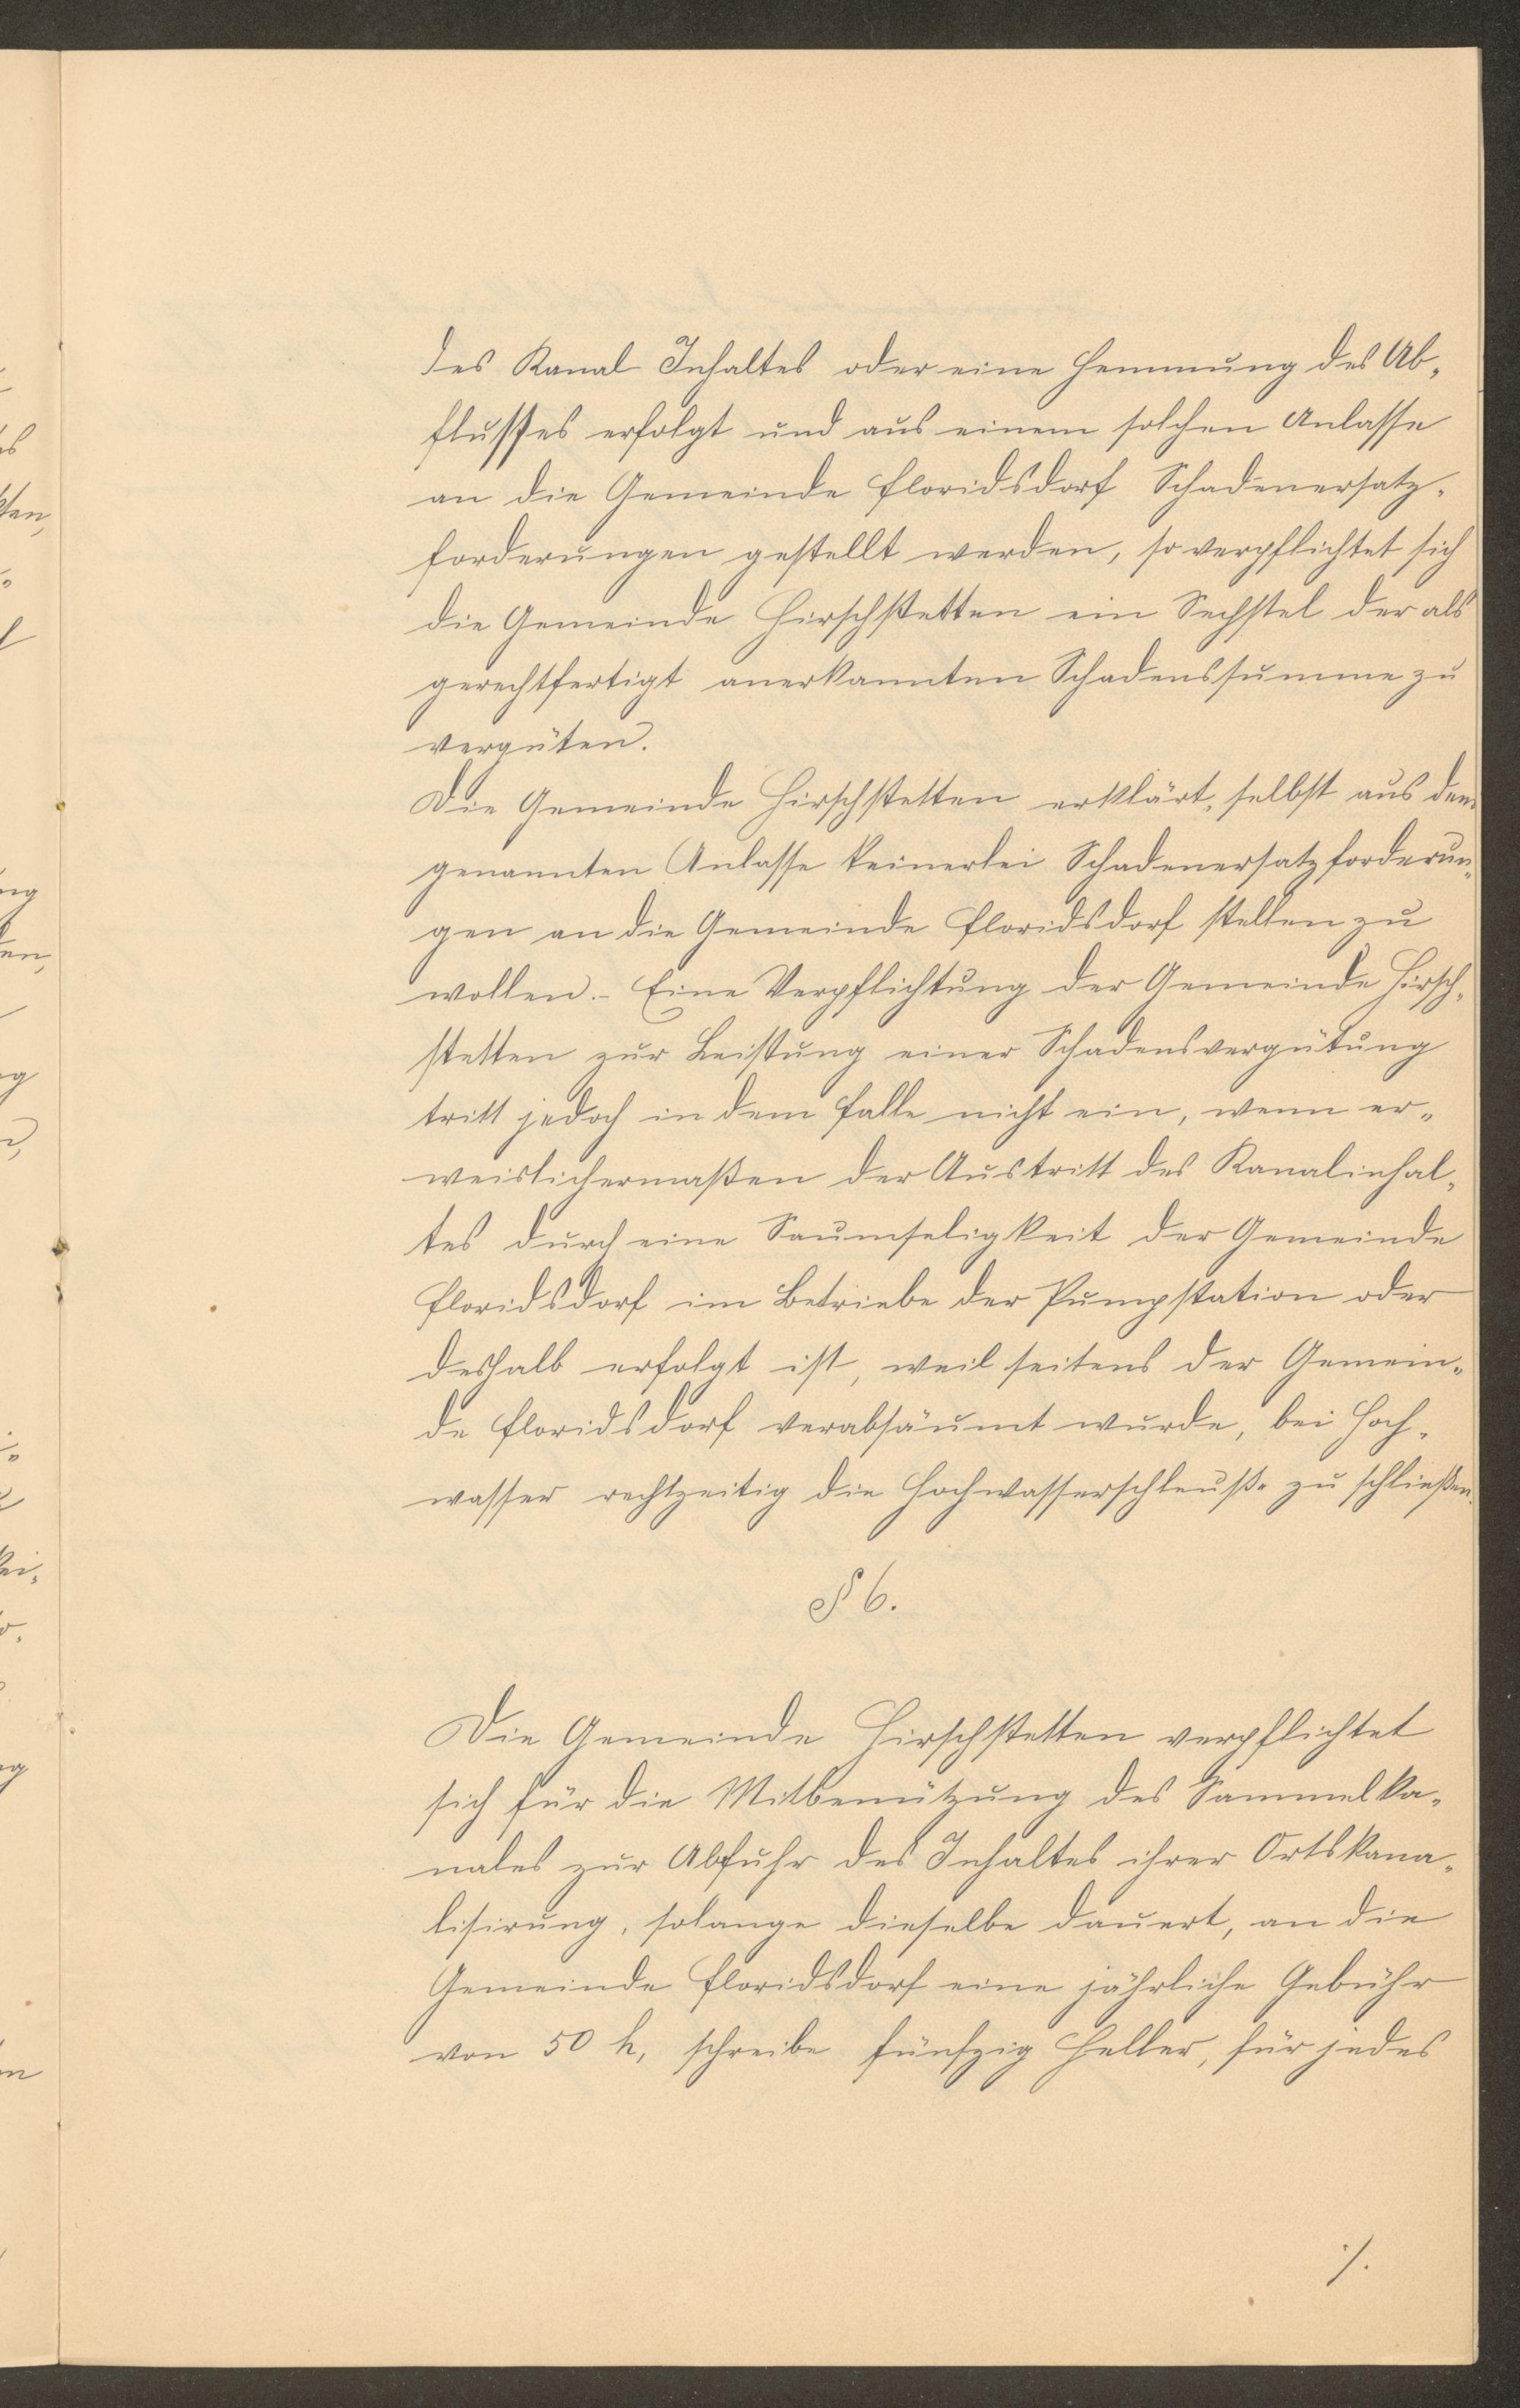 des Kanal Inhaltes oder eine Hemmung des Ab-
flusses erfolgt und aus einem solchen Anlasse
an die Gemeinde Floridsdorf Schadenersatz-
forderungen gestellt werden, so verpflichtet sich
die Gemeinde Hirschstetten ein Sechstel der als
gerechtfertigt anerkannten Schadenssumme zu
vergüten.
Die Gemeinde Hirschstetten erklärt, selbst aus dem
genannten Anlasse keinerlei Schadenersatzforderun-
gen an die Gemeinde Floridsdorf stellen zu
wollen.- Eine Verpflichtung der Gemeinde Hirsch-
stetten zur Leistung einer Schadensvergütung
tritt jedoch in dem Falle nicht ein, wenn er-
weislichermaßen der Austritt des Kanalinhal-
tes durch eine Saumseligkeit der Gemeinde
Floridsdorf im Betriebe der Pumpstation oder
deshalb erfolgt ist, weil seitens der Gemein-
de Floridsdorf verabsäumt wurde, bei Hoch-
wasser rechtzeitig die Hochwasserschleuße zu schließen.
§ 6.
Die Gemeinde Hirschstetten verpflichtet
sich für die Mitbenützung des Sammelka-
nales zur Abfuhr des Inhaltes ihrer Ortskana-
lisirung, solange dieselbe dauert, an die
Gemeinde Floridsdorf eine jährliche Gebühr
von 50 h, schreibe fünfzig Heller, für jedes
./.